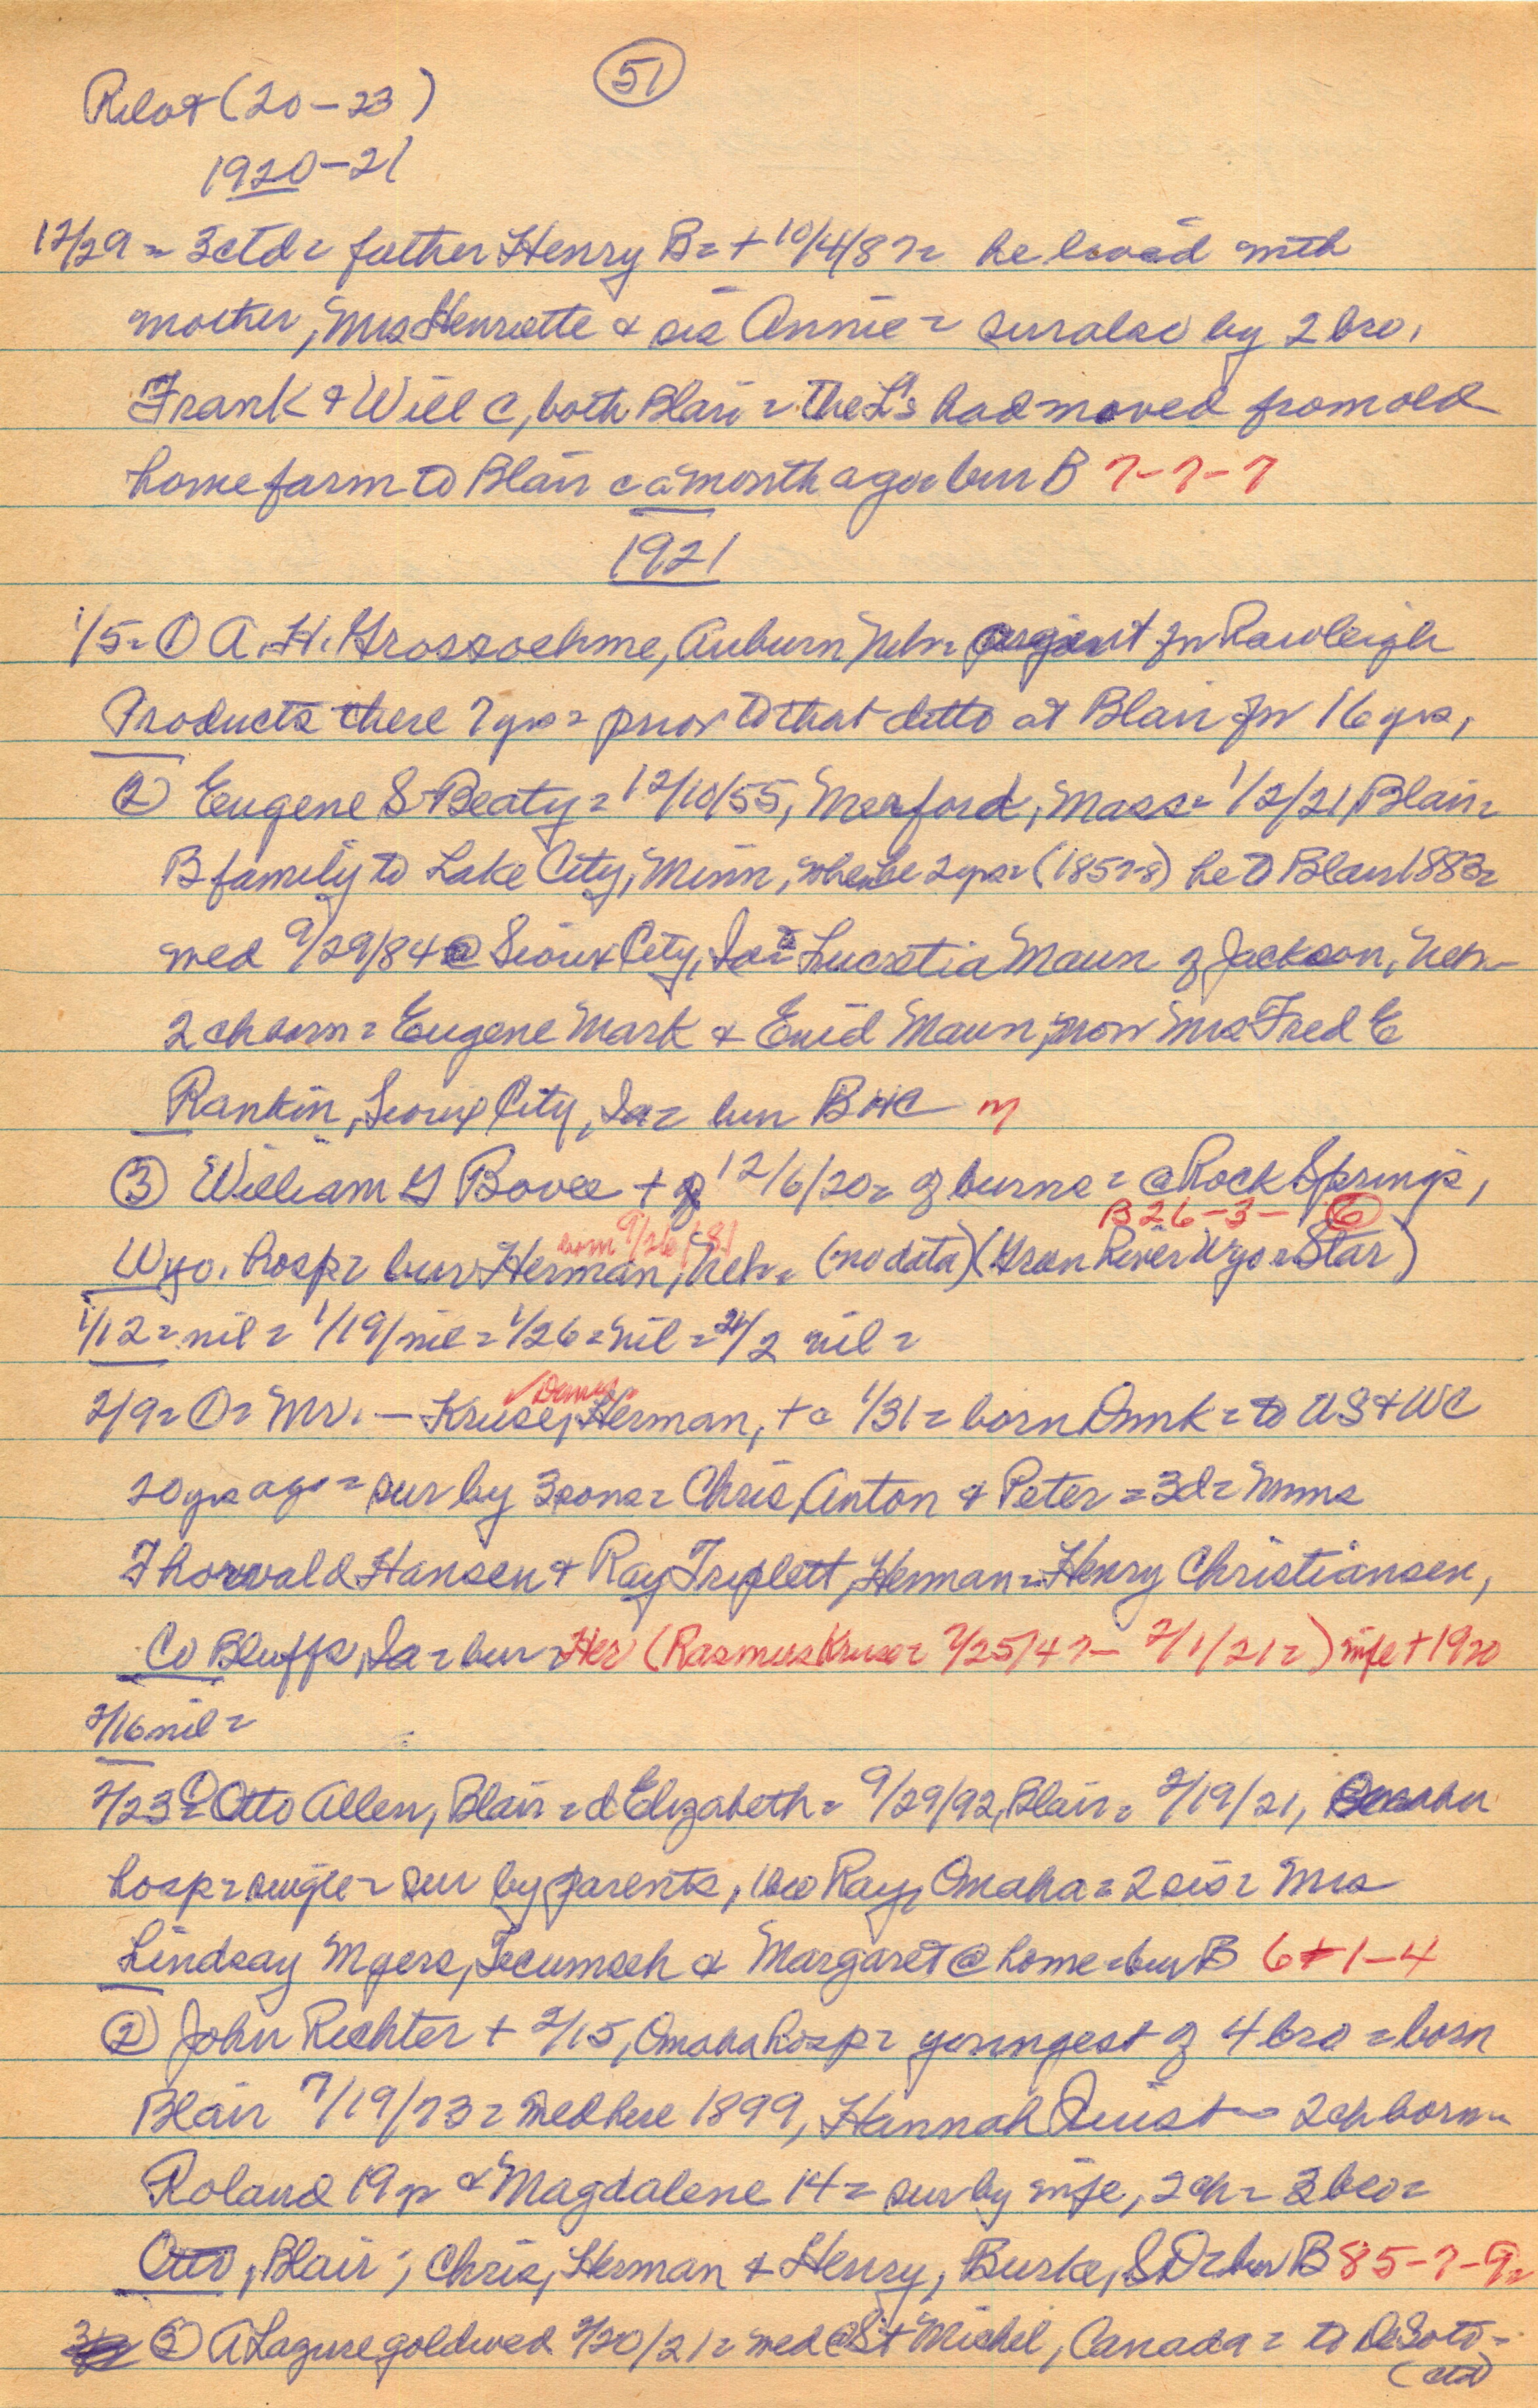 51
Pilot (20-23)
1920-21
12/29 = 3ctd = father Henry B = + 10/4/87 = he lived with
mother, Mrs Henriette & sis Annie = sur also by 2 bro,
Frank & Will C, both Blair = the L's had moved from old
home farm to Blair c a month ago = bur B 7-7-7
1921
1/5 = ① A. H. Grossoehme, Auburn Neb = agent for Rawleigh
Products there 7 yrs = prior to that ditto at Blair for 16 yrs,
② Eugene S Beaty = 12/10/55, Mexford, Mass = 1/2/21, Blair =
B family to Lake City, Minn, when he 2 yrs = (1857-8) he to Blair 1883 =
wed 9/29/84 @ Sioux City, Ia = Lucretia Maun of Jackson, Neb =
2 ch born = Eugene Mark & Enid Maun, now Mrs Fred E
Rankin, Sioux City, Ia = bur B HC M
③ William G Bovee + 12/6/20 = of burns = @ Rock Springs,
B 26-3- 6
born 9/26/81
Wyo. hosp = bur Herman, Neb = (no data) (Green River Wyo = Star)
1/12 = nil = 1/19/nil = 1/26 = nil = 2/2 nil =
2/9 = ① = Mr. — Kruse, Herman, + c 1/31 = born Dnmk = to US & WC
20 yrs ago = sur by 3 sons = Chris, Anton & Peter = 3d = Mmes
Thorwald Hansen & Ray Triplett, Herman = Henry Christiansen,
Co Bluffs, Ia = bur = Her (Rasmus Kruse = 7/25/47 - 2/1/21 =) wife + 1920
2/16 nil =
2/23 = ① Otto Allen, Blair = d Elizabeth = 9/29/92, Blair = 2/19/21, Omaha
hosp = single = sur by parents, bro Ray, Omaha = 2 sis = Mrs
Lindsay Myers, Tecumseh & Margaret @ home = bur B 6-1-4
② John Richter + 2/15, Omaha hosp = youngest of 4 bro = born
Blair 7/19/73 = wed here 1899, Hannah Quist = 2 ch born =
Roland 19 yr & Magdalene 14 = sur by wife, 2 ch = 3 bro =
Otto, Blair; Chris, Herman & Henry, Burke, SD = bur B 85-7-9 =
③ A Lazure gold wed 2/20/21 = wed @ St Michel, Canada = to DeSoto =
(ctd)